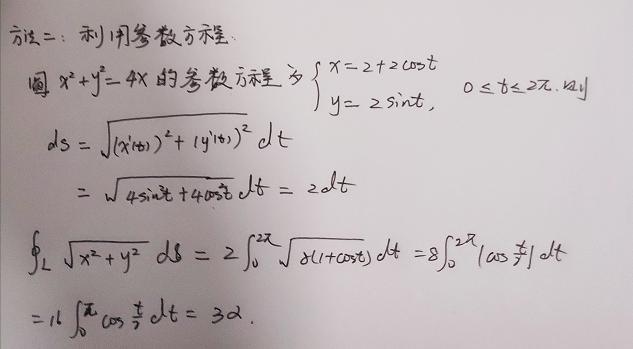 方法二：利用参数方程.
圆 x²+y²=4x 的参数方程为 { x=2+2cost
y=2sint, 0≤t≤2π. 则
ds = √((x'(t))²+(y'(t))²) dt
= √(4sin²t+4cos²t) dt = 2dt
∮_L √(x²+y²) ds = 2∫₀^{2π} √(8(1+cost)) dt = 8∫₀^{2π} |cos t/2| dt
= 16 ∫₀^π cos t/2 dt = 32.